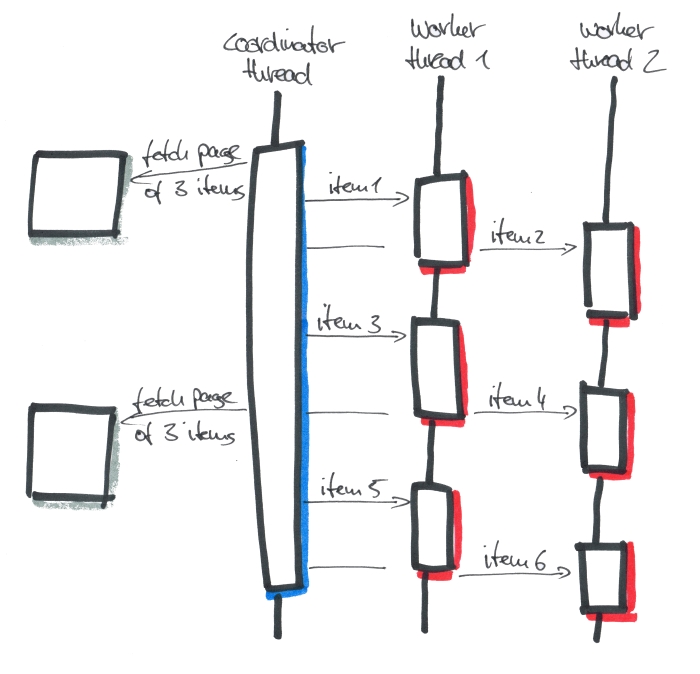 coordinator
thread
worker
thread 1
worker
thread 2
fetch page
of 3 items
item1
item2
item 3
fetch page
of 3 items
item4
item5
item6